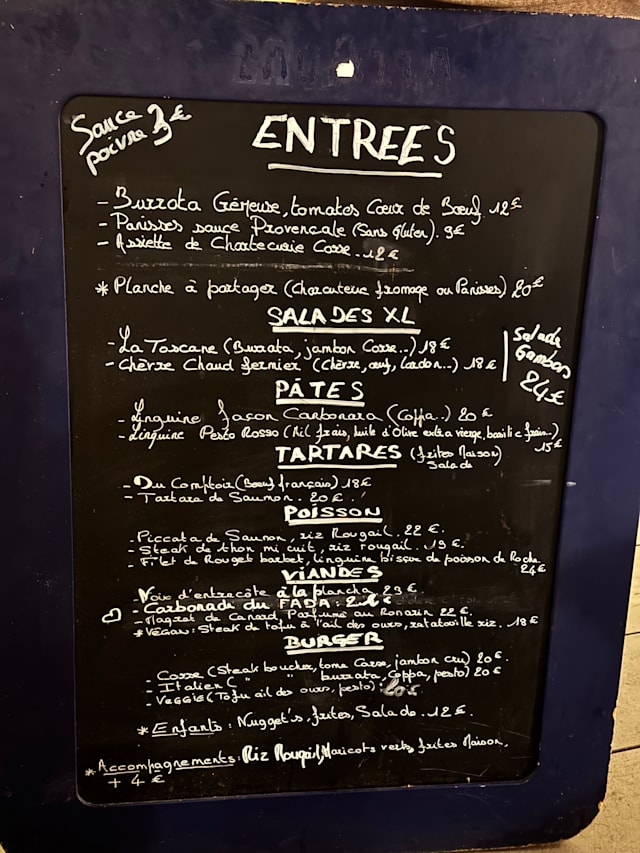 Sauce
poivre 3€
ENTREES
- Burrata Crémeuse, tomates Cœur de Bœuf. 12€
- Panisses sauce Provencale (Sans Gluten). 9€
- Assiette de Charcuterie Corse. 12€
* Planche à partager (Charcuterie fromage ou Panisses) 20€
SALADES XL
- La Toscane (Burrata, jambon Corse...) 18€
- Chèvre Chaud fermier (Chèvre, œuf, lardon...) 18€
Salade
Gambas
24€
PÂTES
- Linguine façon Carbonara (Coppa.) 20€
- Linguine Pesto Rosso (Ail frais, huile d'Olive extra vierge, basilic frais...)
15€
TARTARES (frites Maison)
Salade
- Du Comptoir (Bœuf français) 18€
- Tartare de Saumon. 20€.
POISSON
- Piccata de Saumon, riz Rougail. 22€.
- Steak de thon mi cuit, riz rougail. 19€.
- Filet de Rouget barbet, linguine bisque de poisson de Roche.
24€
VIANDES
- Noix d'entrecôte à la plancha 23€.
- Carbonade du FADA:
- Magret de Canard Parfumé au Romarin 22€.
* Végan: Steak de tofu à l'ail des ours, ratatouille riz. 18€
BURGER
- Corse (Steak boucher, tome Corse, jambon cru) 20€.
- Italien ( " " burrata, Coppa, pesto) 20€
- VEGGIE (Tofu ail des ours, pesto): 20€.
* Enfants: Nugget's, frites, Salade. 12€.
* Accompagnements: Riz Rougail, Haricots verts, frites Maison,
+ 4€